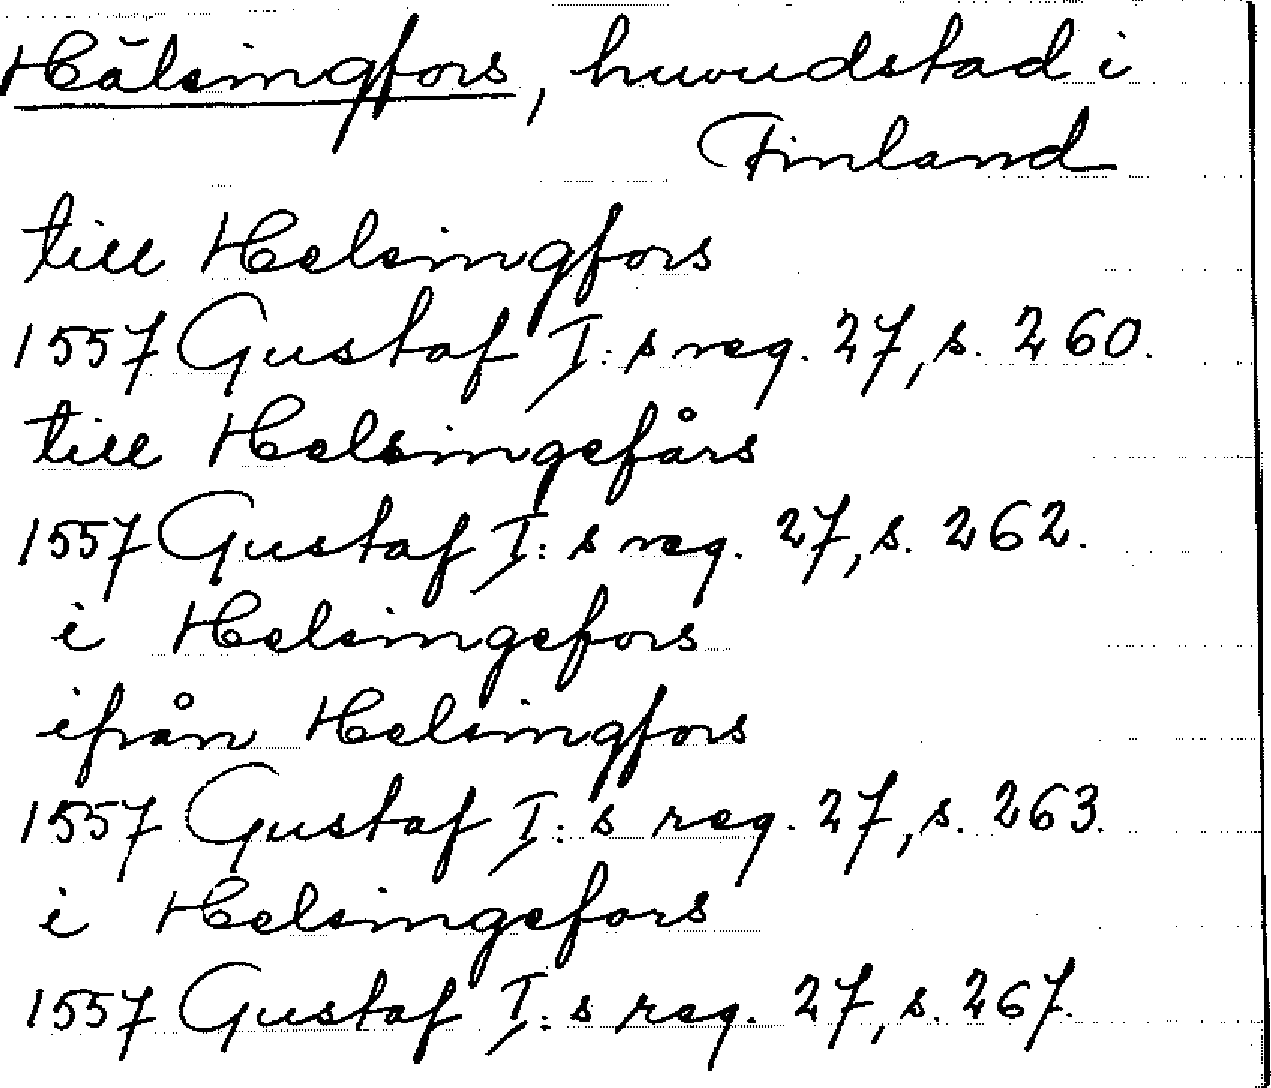 Hälsingfors, huvudstad i
Finland
till Helsingfors
1557 Gustaf I:s reg. 27, s. 260.
till Helsingefårs
1557 Gustaf I:s reg. 27, s. 262.
i Helsingefors
ifrån Helsingfors
1557 Gustaf I:s reg. 27, s. 263.
i Helsingefors
1557 Gustaf I:s reg. 27, s. 267.